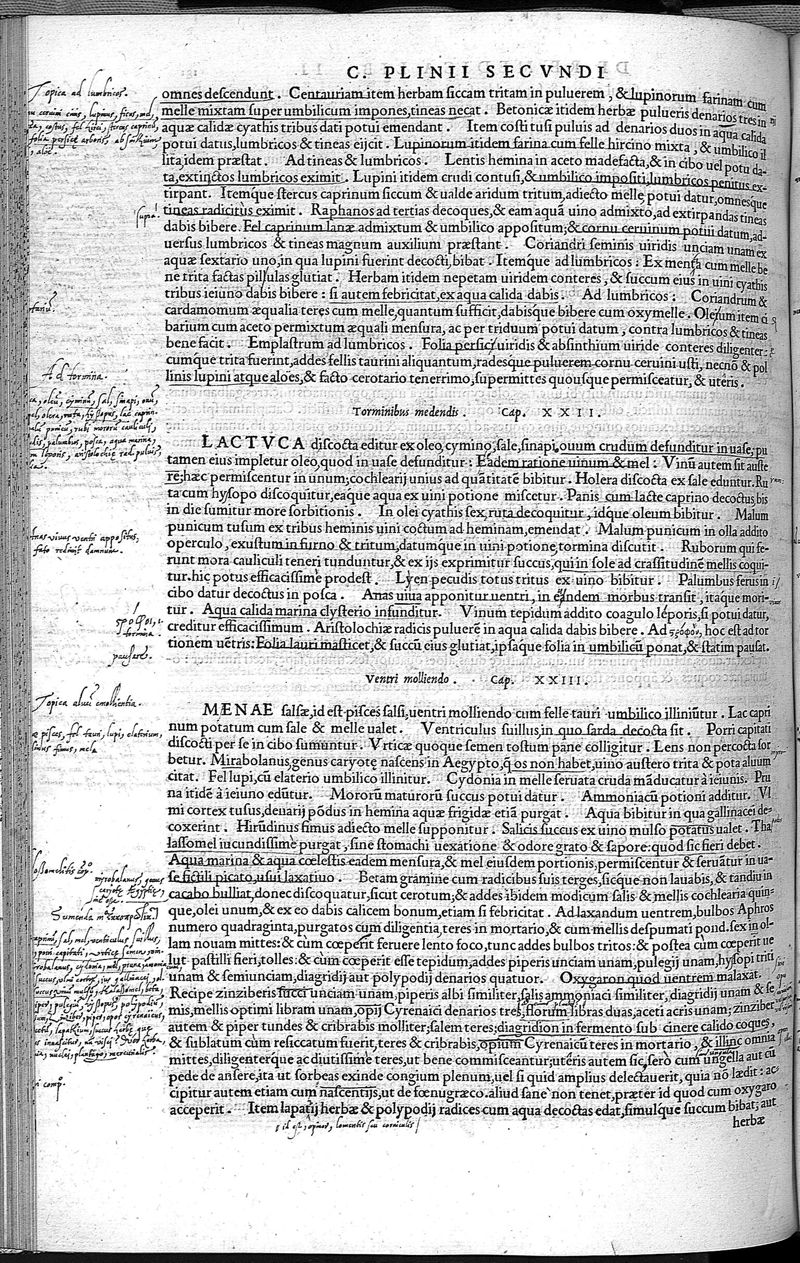 C. PLINII SECVNDI
omnes descendunt. Centauriam item herbam siccam tritam in puluerem, & lupinorum farinam cum
melle mixtam super umbilicum impones, tineas necat. Betonicæ itidem herbæ pulueris denarios tres in
aquæ calidæ cyathis tribus dati potui emendant. Item costi tusi puluis ad denarios duos in aqua calida
potui datus, lumbricos & tineas eijcit. Lupinorum itidem farina cum felle hircino mixta, & umbilico il
lita idem præstat. Ad tineas & lumbricos. Lentis hemina in aceto madefacta, & in cibo uel potu da-
ta, extinctos lumbricos eximit. Lupini itidem crudi contusi, & umbilico impositi, lumbricos penitus ex-
tirpant. Itemq́ue stercus caprinum siccum & ualde aridum tritum, adiecto melle, potui datur, omnesque
tineas radicitus eximit. Raphanos ad tertias decoques, & eam aquã uino admixto, ad extirpandas tineas
dabis bibere. Fel caprinum lanæ admixtum & umbilico appositum; & cornu ceruinum potui datum, ad-
uersus lumbricos & tineas magnum auxilium præstant. Coriandri seminis uiridis unciam unam ex
aquæ sextario uno, in qua lupini fuerint decocti, bibat. Itemq́ue ad lumbricos: Ex menta cum melle be
ne trita factas pillulas glutiat. Herbam itidem nepetam uiridem conteres, & succum eius in uini cyathis
tribus ieiuno dabis bibere: si autem febricitat, ex aqua calida dabis. Ad lumbricos: Coriandrum &
cardamomum æqualia teres cum melle, quantum sufficit, dabisque bibere cum oxymelle. Olesum item ci
barium cum aceto permixtum æquali mensura, ac per triduum potui datum, contra lumbricos & tineas
bene facit. Emplastrum ad lumbricos. Folia persici uiridis & absinthium uiride conteres diligenter:
cumque trita fuerint, addes fellis taurini aliquantum, radesque puluerem cornu ceruini usti, necnõ & pol
linis lupini atque aloës, & facto cerotario tenerrimo, supermittes quousque permisceatur, & uteris.
Torminibus medendis. Cap. XXII.
LACTVCA discocta editur ex oleo, cymino, sale, sinapi, ouum crudum defunditur in uase, pu
tamen eius impletur oleo, quod in uase defunditur: Eadem ratione uinum & mel: Vinũ autem sit auste
re; hæc permiscentur in unum; cochlearij unius ad quãtitatẽ bibitur. Holera discocta ex sale eduntur. Ru
ta cum hysopo discoquitur, eaque aqua ex uini potione miscetur. Panis cum lacte caprino decoctus, bis
in die sumitur more sorbitionis. In olei cyathis sex, ruta decoquitur, idque oleum bibitur. Malum
punicum tusum ex tribus heminis uini coctum ad heminam, emendat. Malum punicum in olla addito
operculo, exustum in furno & tritum; datumque in uini potione, tormina discutit. Ruborum qui fe-
runt mora cauliculi teneri tunduntur, & ex ijs exprimitur succus, qui in sole ad crassitudinẽ mellis coqui-
tur. hic potus efficacissime prodest. Lyen pecudis totus tritus ex uino bibitur. Palumbus ferus in
cibo datur decoctus in posca. Anas uiua apponitur uentri, in eundem morbus transit, itaque mori-
tur. Aqua calida marina clysterio infunditur. Vinum tepidum addito coagulo leporis, si potui datur,
creditur efficacissimum. Aristolochiæ radicis puluerẽ in aqua calida dabis bibere. Ad στρόφον, hoc est ad tor
tionem uẽtris: Folia lauri masticet, & succũ eius glutiat, ipsaque folia in umbilicũ ponat, & statim pausat.
Ventri molliendo. Cap. XXIII.
MENAE salsæ, id est pisces salsi, uentri molliendo cum felle tauri umbilico illiniũtur. Lac capri
num potatum cum sale & melle ualet. Ventriculus suillus, in quo sarda decocta sit. Porri capitati
discocti per se in cibo sumuntur. Vrticæ quoque semen tostum pane colligitur. Lens non percocta sor
betur. Mirabolanus, genus caryotę nascens in Aegypto, q̃ os non habet, uino austero trita & pota aluum
citat. Fel lupi, cũ elaterio umbilico illinitur. Cydonia in melle seruata cruda mãducatur à ieiunis. Pru
na itidẽ à ieiuno edũtur. Mororũ maturorũ succus potui datur. Ammoniacũ potioni additur. Vl
mi cortex tusus, denarij põdus in hemina aquæ frigidæ etiã purgat. Aqua bibitur in qua gallinacei de-
coxerint. Hirũdinus fimus adiecto melle supponitur. Salicis succus ex uino mulso potatus ualet. Tha
lassomel iucundissime purgat, sine stomachi uexatione & odore grato & sapore: quod sic fieri debet.
Aqua marina & aqua cœlestis eadem mensura, & mel eiusdem portionis, permiscentur & seruãtur in ua-
se fictili picato, usui laxatiuo. Betam gramine cum radicibus suis terges, sicque non lauabis, & tandiu in
cacabo bulliat, donec discoquatur, sicut cerotum; & addes ibidem modicum salis & mellis cochlearia quin-
que, olei unum, & ex eo dabis calicem bonum, etiam si febricitat. Ad laxandum uentrem, bulbos Aphros
numero quadraginta, purgatos cum diligentia, teres in mortario, & cum mellis despumati pond. sex in ol
lam nouam mittes: & cum cœperit feruere lento foco, tunc addes bulbos tritos: & postea cum cœperit ue
lut pastilli fieri, tolles: & cum cœperit esse tepidum, addes piperis unciam unam, pulegij unam, hysopi triti
unam & semiunciam, diagridij aut polypodij denarios quatuor. Oxygaron quod uentrem malaxat.
Recipe zinziberis succi unciam unam, piperis albi similiter, salis ammoniaci similiter, diagridij unam & se
mis, mellis optimi libram unam, opij Cyrenaici denarios tres, florum libras duas, aceti acris unam; zinziber
autem & piper tundes & cribrabis molliter; salem teres; diagridion in fermento sub cinere calido coques,
& sublatum cum resiccatum fuerit, teres & cribrabis, opium Cyrenaicũ teres in mortario, & illinc omnia
mittes, diligenterque ac diutissime teres, ut bene commisceantur; utẽris autem sic, sero cum ungella aut cũ
pede de ansere, ita ut sorbeas exinde congium plenum, uel si quid amplius delectauerit, quia nõ lædit: ac-
cipitur autem etiam cum nascentijs, ut de fœnugræco. aliud sane non tenet, præter id quod cum oxygaro
acceperit. Item lapatij herbæ & polypodij radices cum aqua decoctas edat, simulque succum bibat; aut
herbæ
Topica ad lumbricos.
Ad tormina.
στρόφοι,
tormina.
pausare.
Topica alui emollientia.